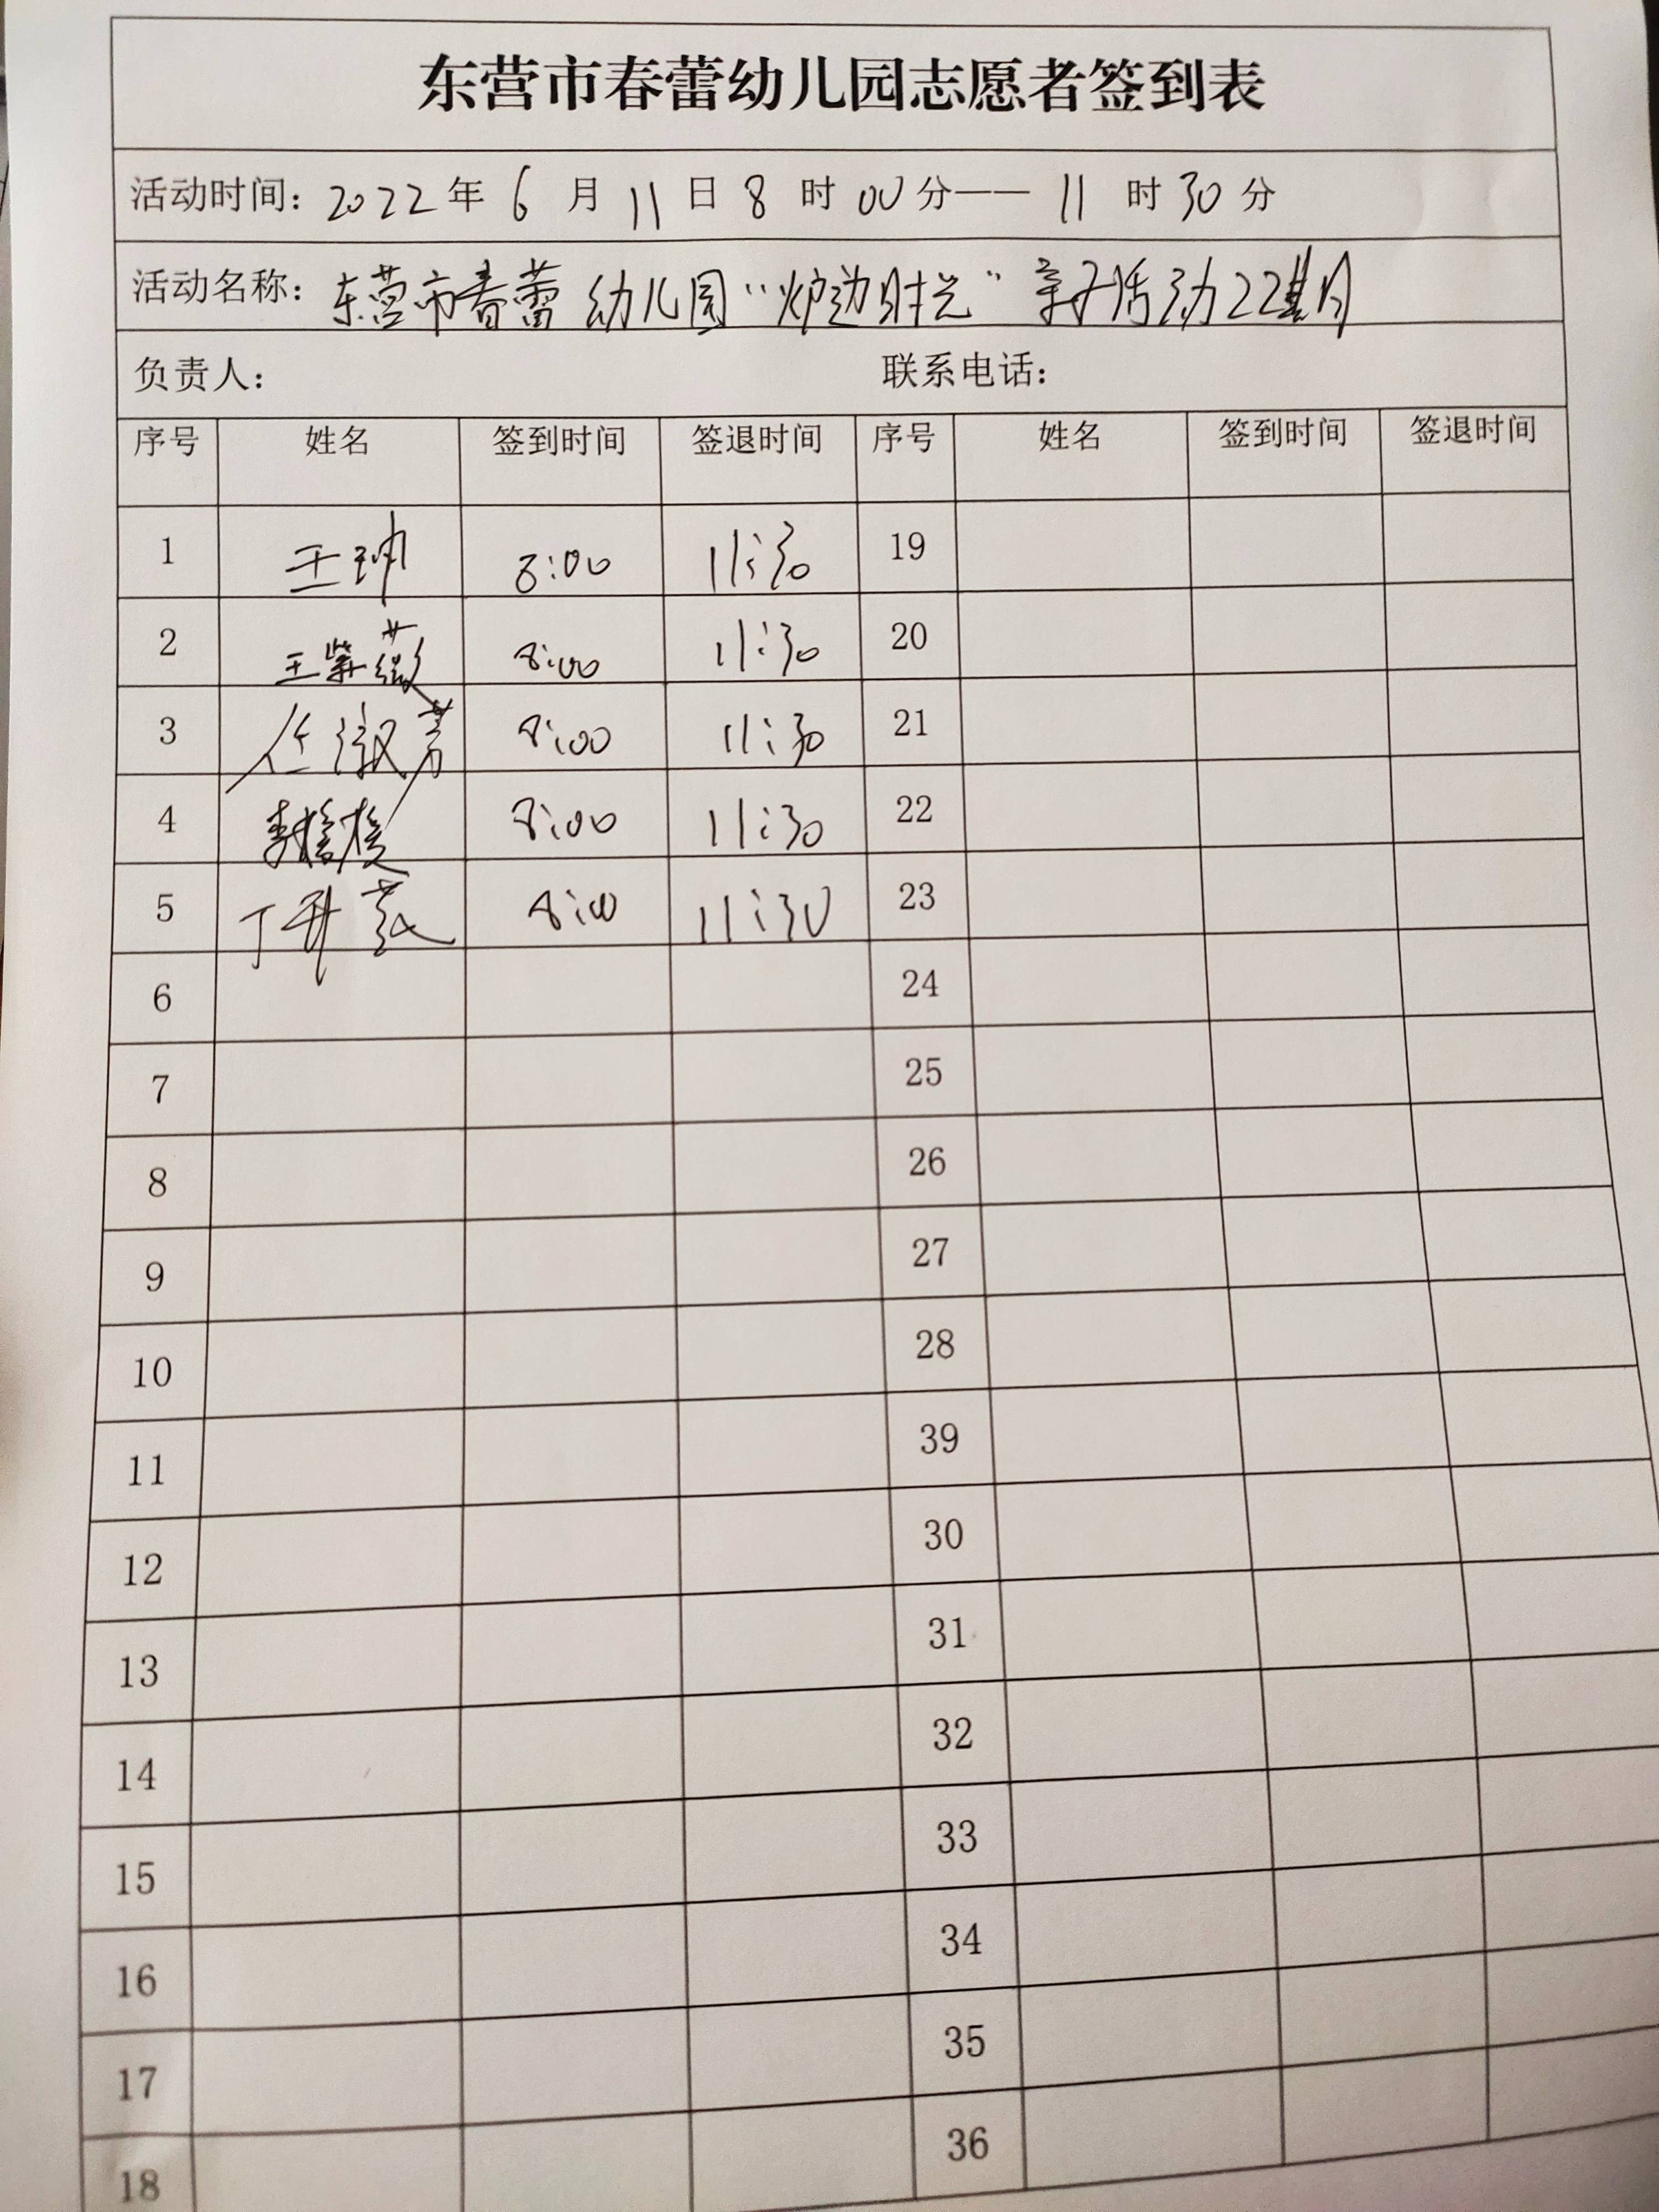 东营市春蕾幼儿园志愿者签到表
活动时间：2022年6月11日8时00分——11时30分
活动名称：东营市春蕾幼儿园“炉边时光”亲子活动22期
负责人： 联系电话：
序号 姓名 签到时间 签退时间 序号 姓名 签到时间 签退时间
1 王 8:00 11:30 19
2 王紫薇 8:00 11:30 20
3 任淑芳 8:00 11:30 21
4 李 8:00 11:30 22
5 丁 8:00 11:30 23
6 24
7 25
8 26
9 27
10 28
11 39
12 30
13 31
14 32
15 33
16 34
17 35
18 36